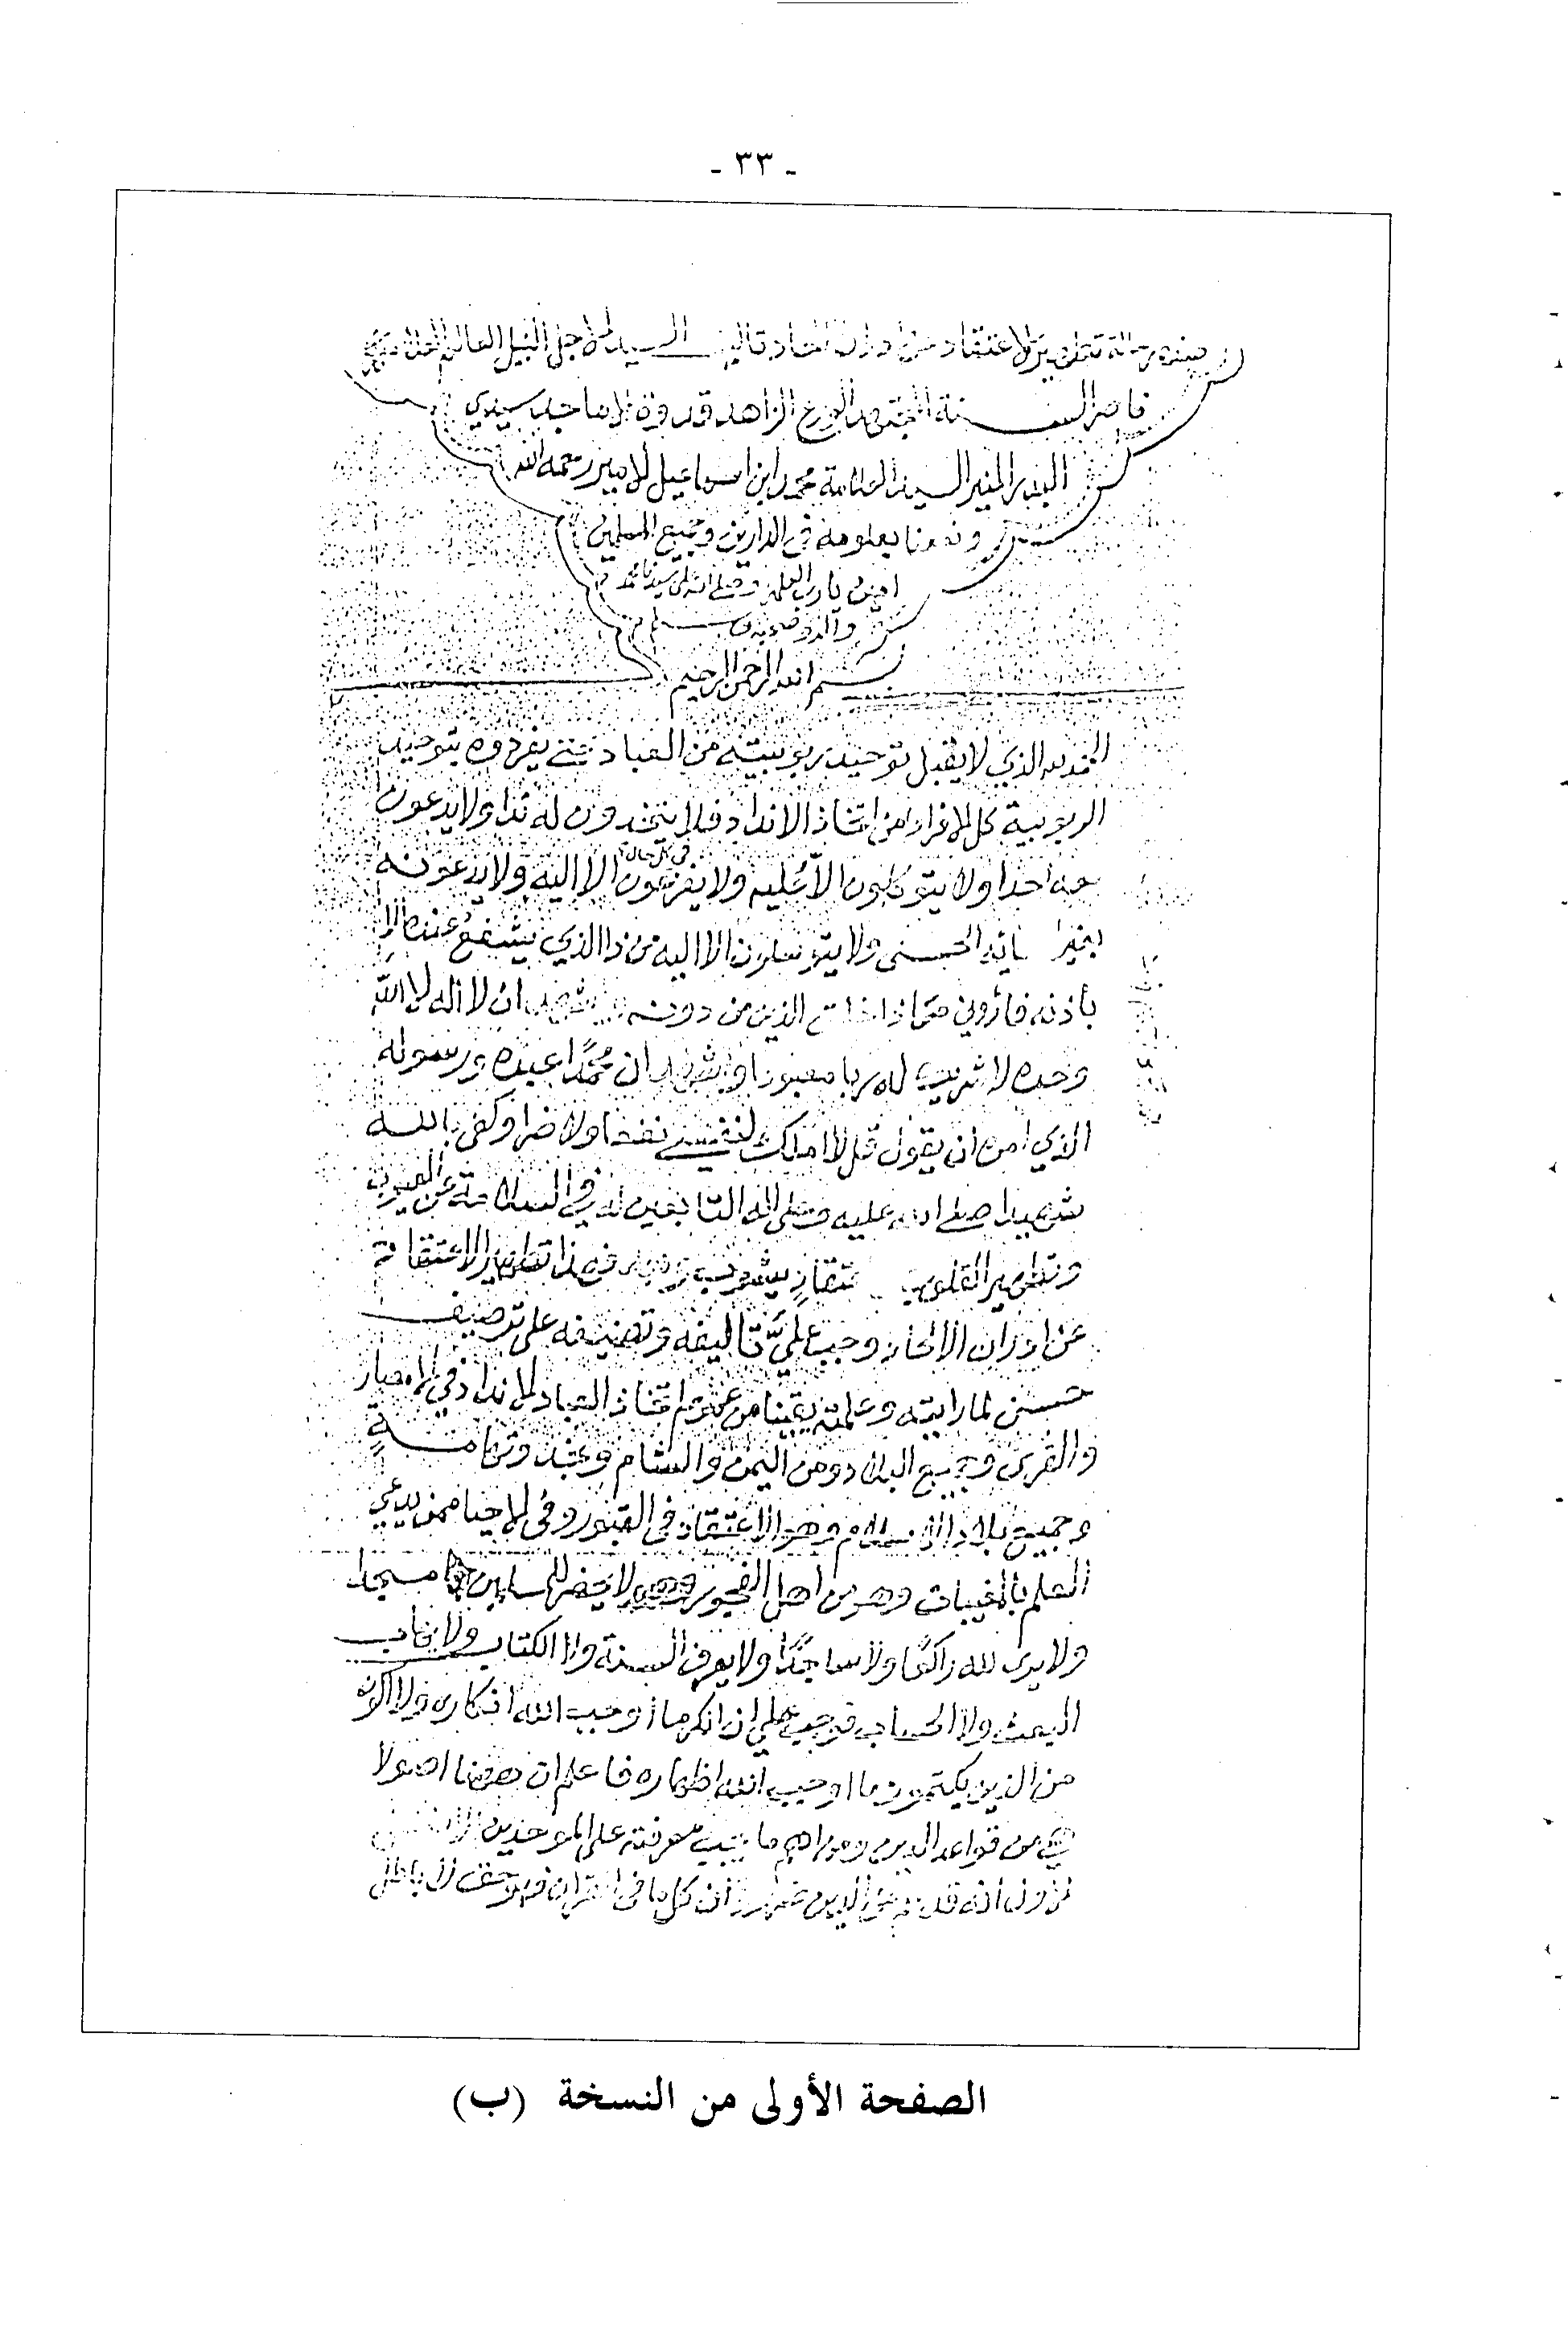 - ٣٣ -
هذه رسالة تطهير الاعتقاد عن ادران الالحاد تاليف السيد الاجل النبيل العالم
ناصر السنة المجتهد الورع الزاهد قدوة الاماجد سيدي
البدر المنير السيد العلامة محمد ابن اسماعيل الامير رحمه الله
ونفعنا بعلومه في الدارين وجميع المسلمين
امين يارب العلمين وصلى الله على سيدنا محمد
واله وصحبه وسلم
بسم الله الرحمن الرحيم
الحمد لله الذي لا يقبل توحيد ربوبيته من العباد حتى يفردوه بتوحيد
الربوبية كل الافراد من اتخاذ الانداد فلا يتخذون له ندا ولا يدعون
معه احدا ولا يتوكلون الا عليه ولا يفزعون في كل حال الا اليه ولا يدعونه
بغير اسمائه الحسنى ولا يتوسلون الا اليه من ذا الذي يشفع عنده الا
بأذنه فاروني ماذا خلق الذين من دونه واشهد ان لا اله الا الله
وحده لا شريك له ربا معبودا واشهد ان محمدًا عبده ورسوله
الذي امره ان يقول قل لا املك لنفسي نفعا ولا ضرا وكفى بالله
شهيدا صلى الله عليه وعلى اله التابعين له في السلامة من العيوب
وتطهير القلوب فهذا تطهير الاعتقاد
عن ادران الالحاد وجب عليَّ تاليفه وتصنيفه على ترصيف
حسن لما رايته وعلمته يقينا من عموم اتخاذ العباد الانداد في الامصار
والقرى وجميع البلاد من اليمن والشام ونجد وتهامة
وجميع بلاد الاسلام وهو الاعتقاد في القبور وفي الاحيا ممن يدعي
العلم بالمغيبات وهو من اهل الفجور لا يحضر للمسلمين مسجدا
ولا يرى لله راكعًا ولا ساجدًا ولا يعرف السنة ولا الكتاب ولا يهاب
البعث ولا الحساب فوجب علي ان انكر ما أوجب الله انكاره ولا اكون
من الذين يكتمون ما اوجب الله اظهاره فاعلم ان ههنا اصولا
هي من قواعد الدين ومن اهم ما يجب معرفته على الموحدين
الاول انه قد علم من الدين ان كل ما في القران فهو حق لا باطل
الصفحة الأولى من النسخة (ب)